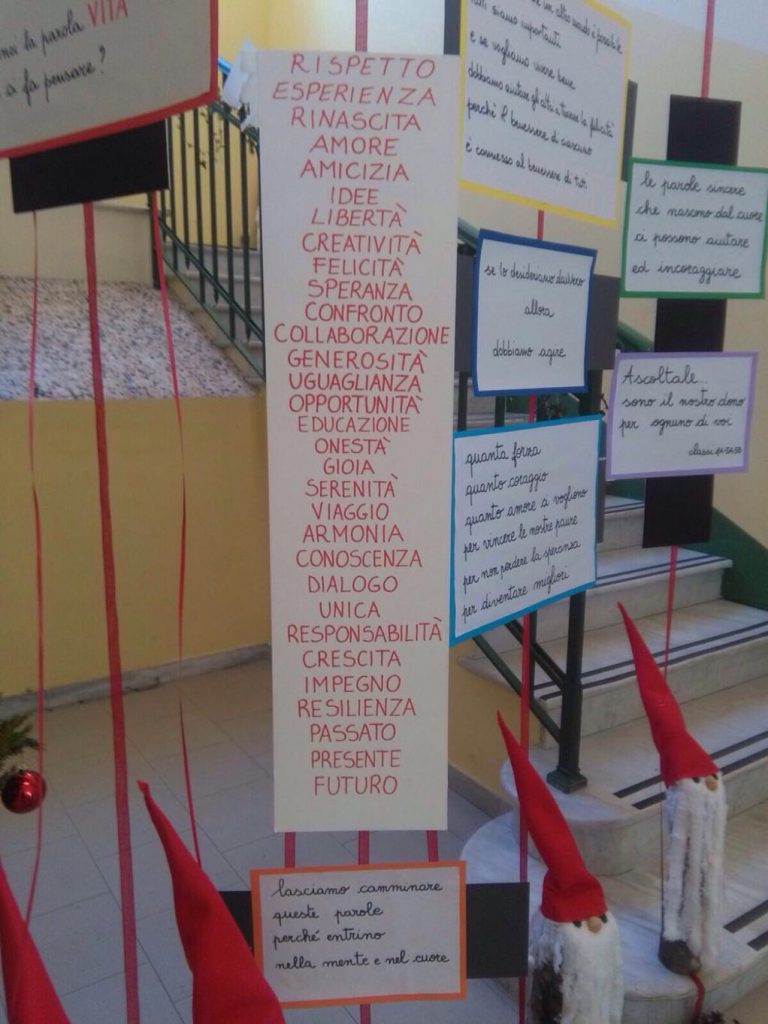 la parola VITA
a fa pensare?
RISPETTO
ESPERIENZA
RINASCITA
AMORE
AMICIZIA
IDEE
LIBERTÀ
CREATIVITÀ
FELICITÀ
SPERANZA
CONFRONTO
COLLABORAZIONE
GENEROSITÀ
UGUAGLIANZA
OPPORTUNITÀ
EDUCAZIONE
ONESTÀ
GIOIA
SERENITÀ
VIAGGIO
ARMONIA
CONOSCENZA
DIALOGO
UNICA
RESPONSABILITÀ
CRESCITA
IMPEGNO
RESILIENZA
PASSATO
PRESENTE
FUTURO
un altro mondo è possibile
tutti siamo importanti
e se vogliamo vivere bene
dobbiamo aiutare gli altri a trovare la felicità
perchè il benessere di ciascuno
è connesso al benessere di tutti
le parole sincere
che nascono dal cuore
ci possono aiutare
ed incoraggiare
se lo desideriamo davvero
allora
dobbiamo agire
Ascoltale...
sono il nostro dono
per ognuno di voi
classi
quanta forza
quanto coraggio
quanto amore ci vogliono
per vincere le nostre paure
per non perdere la speranza
per diventare migliori
lasciamo camminare
queste parole
perché entrino
nella mente e nel cuore